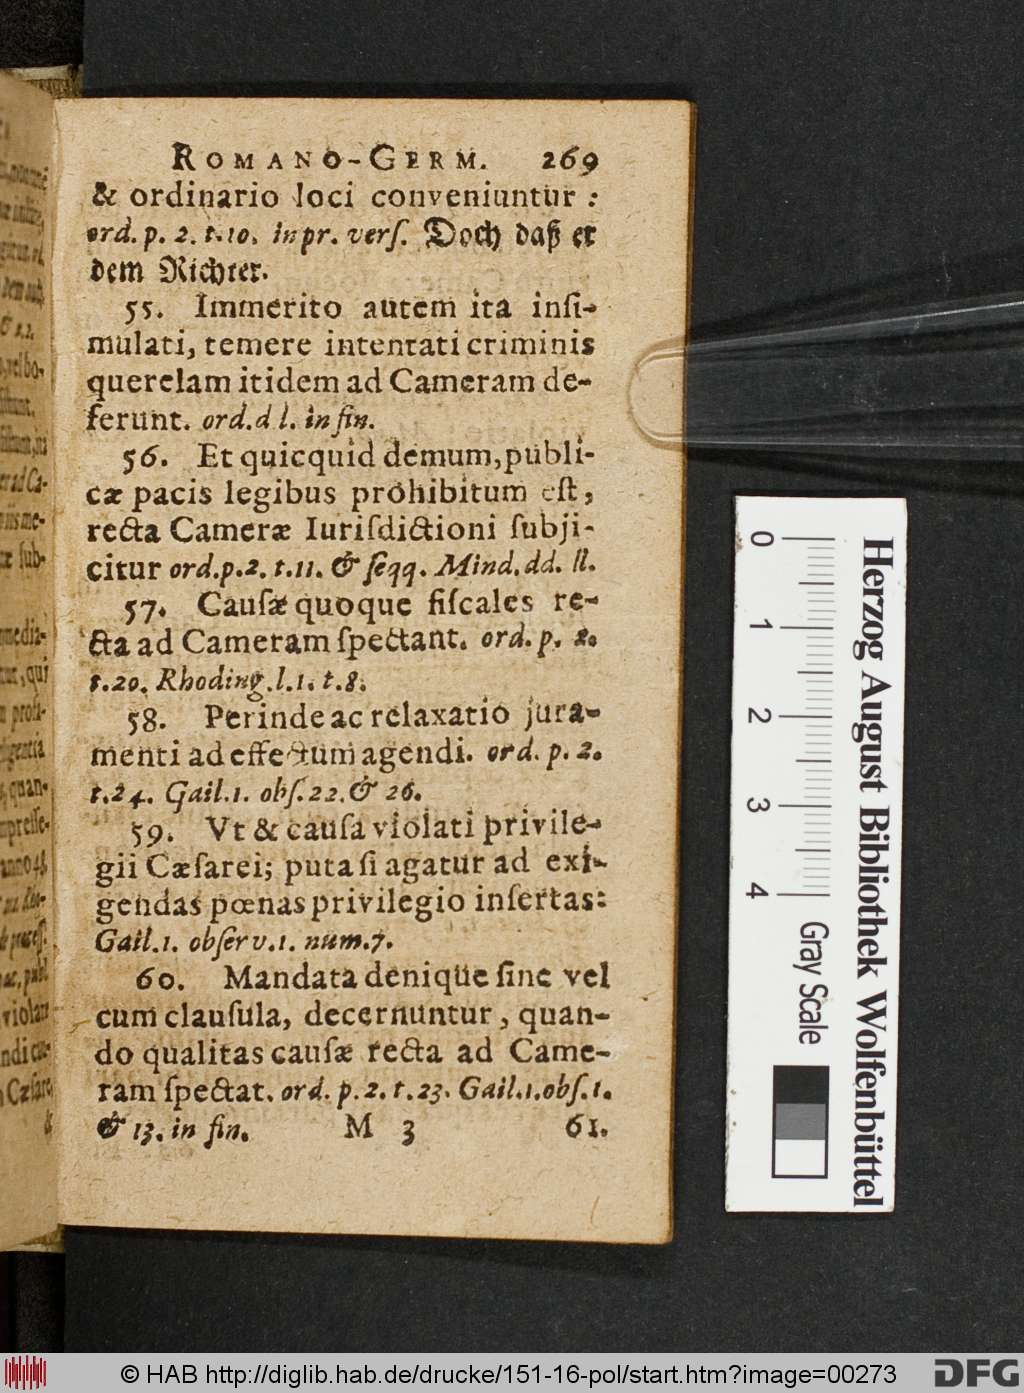 ROMANO-GERM. 269
& ordinario loci conveniuntur :
ord. p. 2. t. 10. in pr. verſ. Doch daß er
dem Richter.
55. Immerito autem ita inſi-
mulati, temere intentati criminis
querelam itidem ad Cameram de-
ferunt. ord. d l. in fin.
56. Et quicquid demum, publi-
cæ pacis legibus prohibitum eſt,
recta Cameræ Iuriſdictioni ſubji-
citur ord. p. 2. t. 11. & ſeqq. Mind. dd. ll.
57. Cauſæ quoque fiſcales re-
cta ad Cameram ſpectant. ord. p. 2.
t. 20. Rhoding. l. 1. t. 8.
58. Perinde ac relaxatio jura-
menti ad effectum agendi. ord. p. 2.
t. 24. Gail. 1. obſ. 22. & 26.
59. Vt & cauſa violati privile-
gii Cæſarei; puta ſi agatur ad exi-
gendas pœnas privilegio inſertas:
Gail. 1. obſerv. 1. num. 7.
60. Mandata denique ſine vel
cum clauſula, decernuntur, quan-
do qualitas cauſæ recta ad Came-
ram ſpectat. ord. p. 2. t. 23. Gail. 1. obſ. 1.
& 13. in fin. M 3 61.
0 1 2 3 4
Gray Scale
Herzog August Bibliothek Wolfenbüttel
© HAB http://diglib.hab.de/drucke/151-16-pol/start.htm?image=00273
DFG